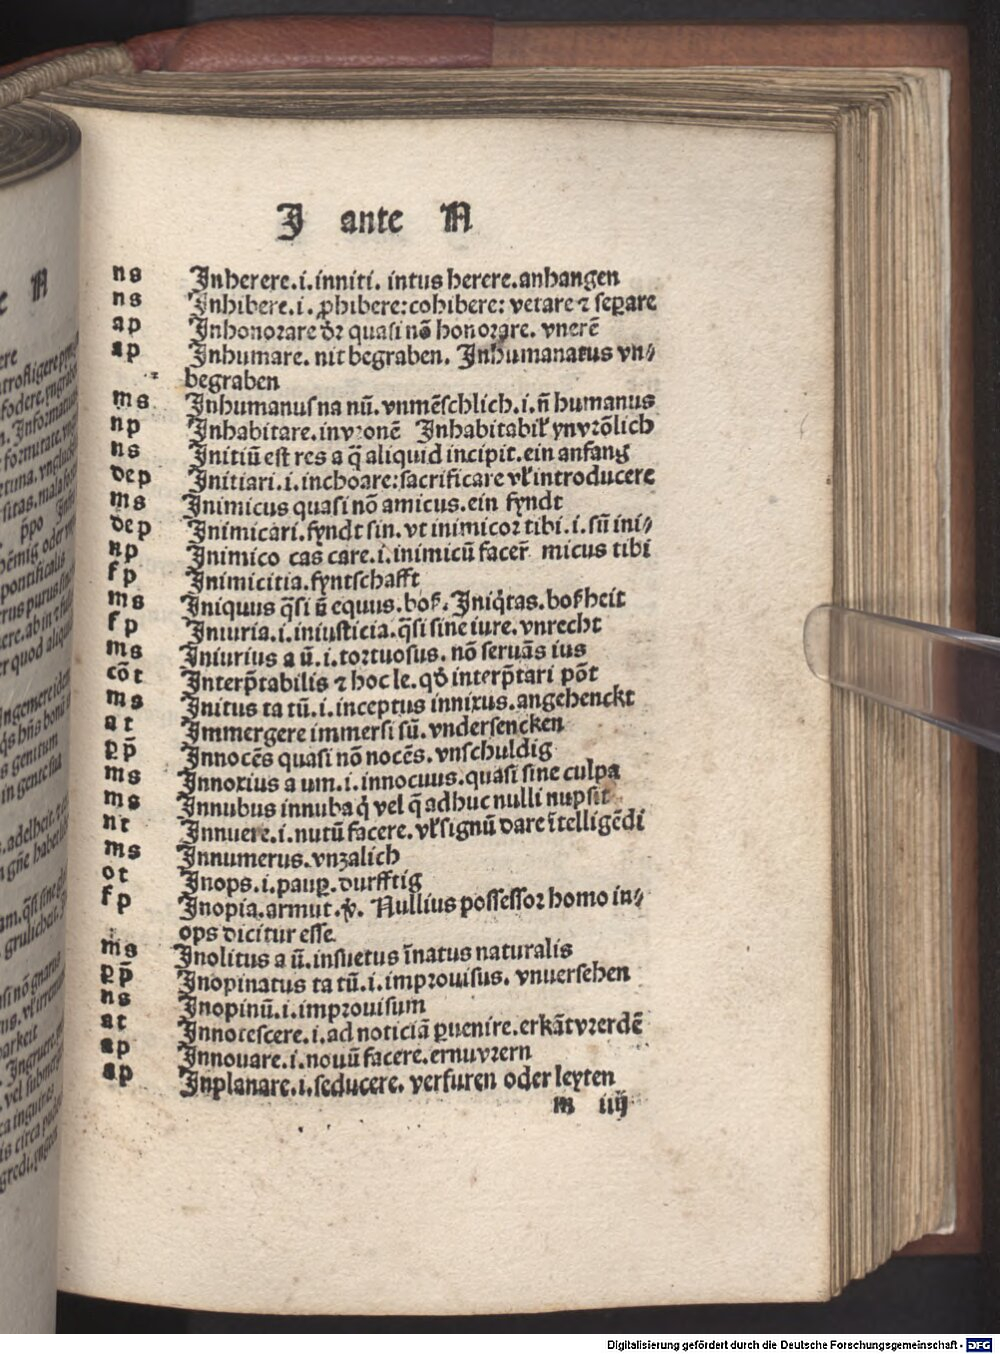 J ante N
ns Inherere.i.inniti. intus herere.anhangen
ns Inhibere.i.ꝓhibere:cohibere: vetare ⁊ seꝑare
ap Inhonorare dr̄ quasi nō honorare. vnerē
ap Inhumare. nit begraben. Inhumanatus vn⸗
begraben
ms Inhumanus na nū. vnmēschlich.i.n̄ humanus
np Inhabitare.invꝛonē Inhabitabiƚ ynvꝛōlich
ns Initiū est res a q̄ aliquid incipit.ein anfang
dep Initiari.i.inchoare:sacrificare vƚ introducere
ms Inimicus quasi nō amicus.ein fyndt
dep Inimicari.fyndt sin. vt inimicoꝛ tibi.i.sū ini⸗
np Inimico cas care.i.inimicū facer̄ micus tibi
fp Inimicitia.fyntschafft
ms Iniquus q̄si n̄ equus.boß. Iniq̇tas.boßheit
fp Iniuria.i.iniusticia.q̄si sine iure. vnrecht
ms Iniurius a ū.i.toꝛtuosus. nō seruās ius
cōt Interp̄tabilis ⁊ hoc le. qḋ interp̄tari pōt
ms Initus ta tū.i.inceptus innixus.angehenckt
at Immergere immersi sū. vndersencken
ꝑp̄ Innocēs quasi nō nocēs. vnschuldig
ms Innoxius a um.i.innocuus.quasi sine culpa
ms Innubus innuba q̇ vel q̄ adhuc nulli nupsit
nt Innuere.i.nutū facere. vƚ signū dare ītelligēdi
ms Innumerus. vnzalich
ot Inops.i.pauꝑ. durfftig
fp Inopia.armut.ꝟ. Nullius possessoꝛ homo in⸗
ops dicitur esse.
ms Inolitus a ū. insuetus īnatus naturalis
ꝑp̄ Inopinatus ta tū.i.impꝛouisus. vnuersehen
ns Inopinū.i.impꝛouisum
at Innotescere.i.ad noticiā ꝑuenire.erkātvꝛerdē
ap Innouare.i.nouū facere.ernuvꝛern
ap Inplanare.i.seducere. verfuren oder leyten
m iiij
Digitalisierung gefördert durch die Deutsche Forschungsgemeinschaft - DFG